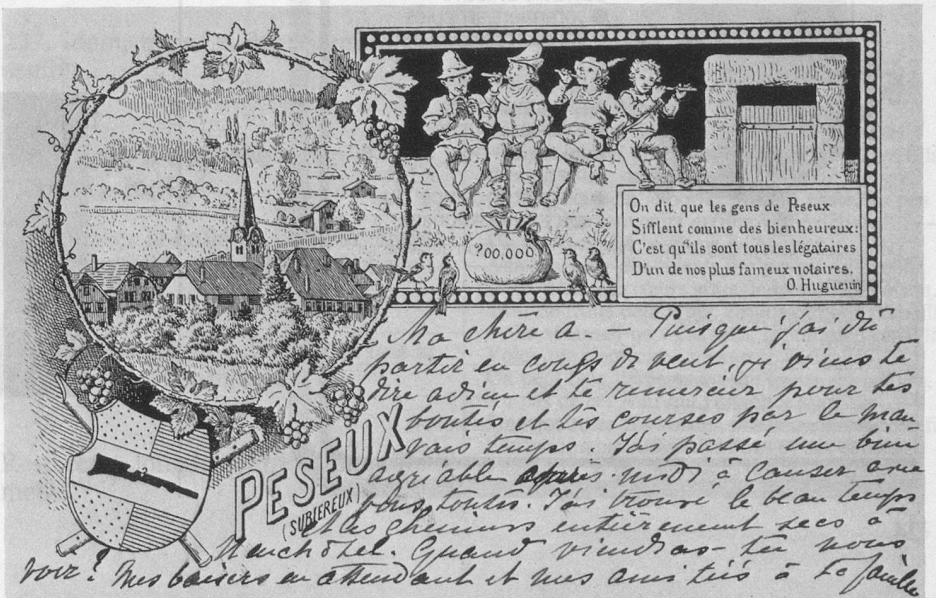 200,000
On dit que les gens de Peseux
Sifflent comme des bienheureux:
C'est qu'ils sont tous les légataires
D'un de nos plus fameux notaires.
O. Huguenin
PESEUX
(SUBIEREUX)
Ma chère A. — Puisque j'ai dû
partir en coup de vent, je viens te
dire adieu et te remercier pour tes
bontés et tes courses par le mau
vais temps. J'ai passé une bien
agréable après-midi à causer avec
vous toutes. J'ai trouvé le beau temps
et les chemins entièrement secs à
Neuchâtel. Quand viendras-tu nous
voir? Mes baisers en attendant et mes amitiés à ta famille